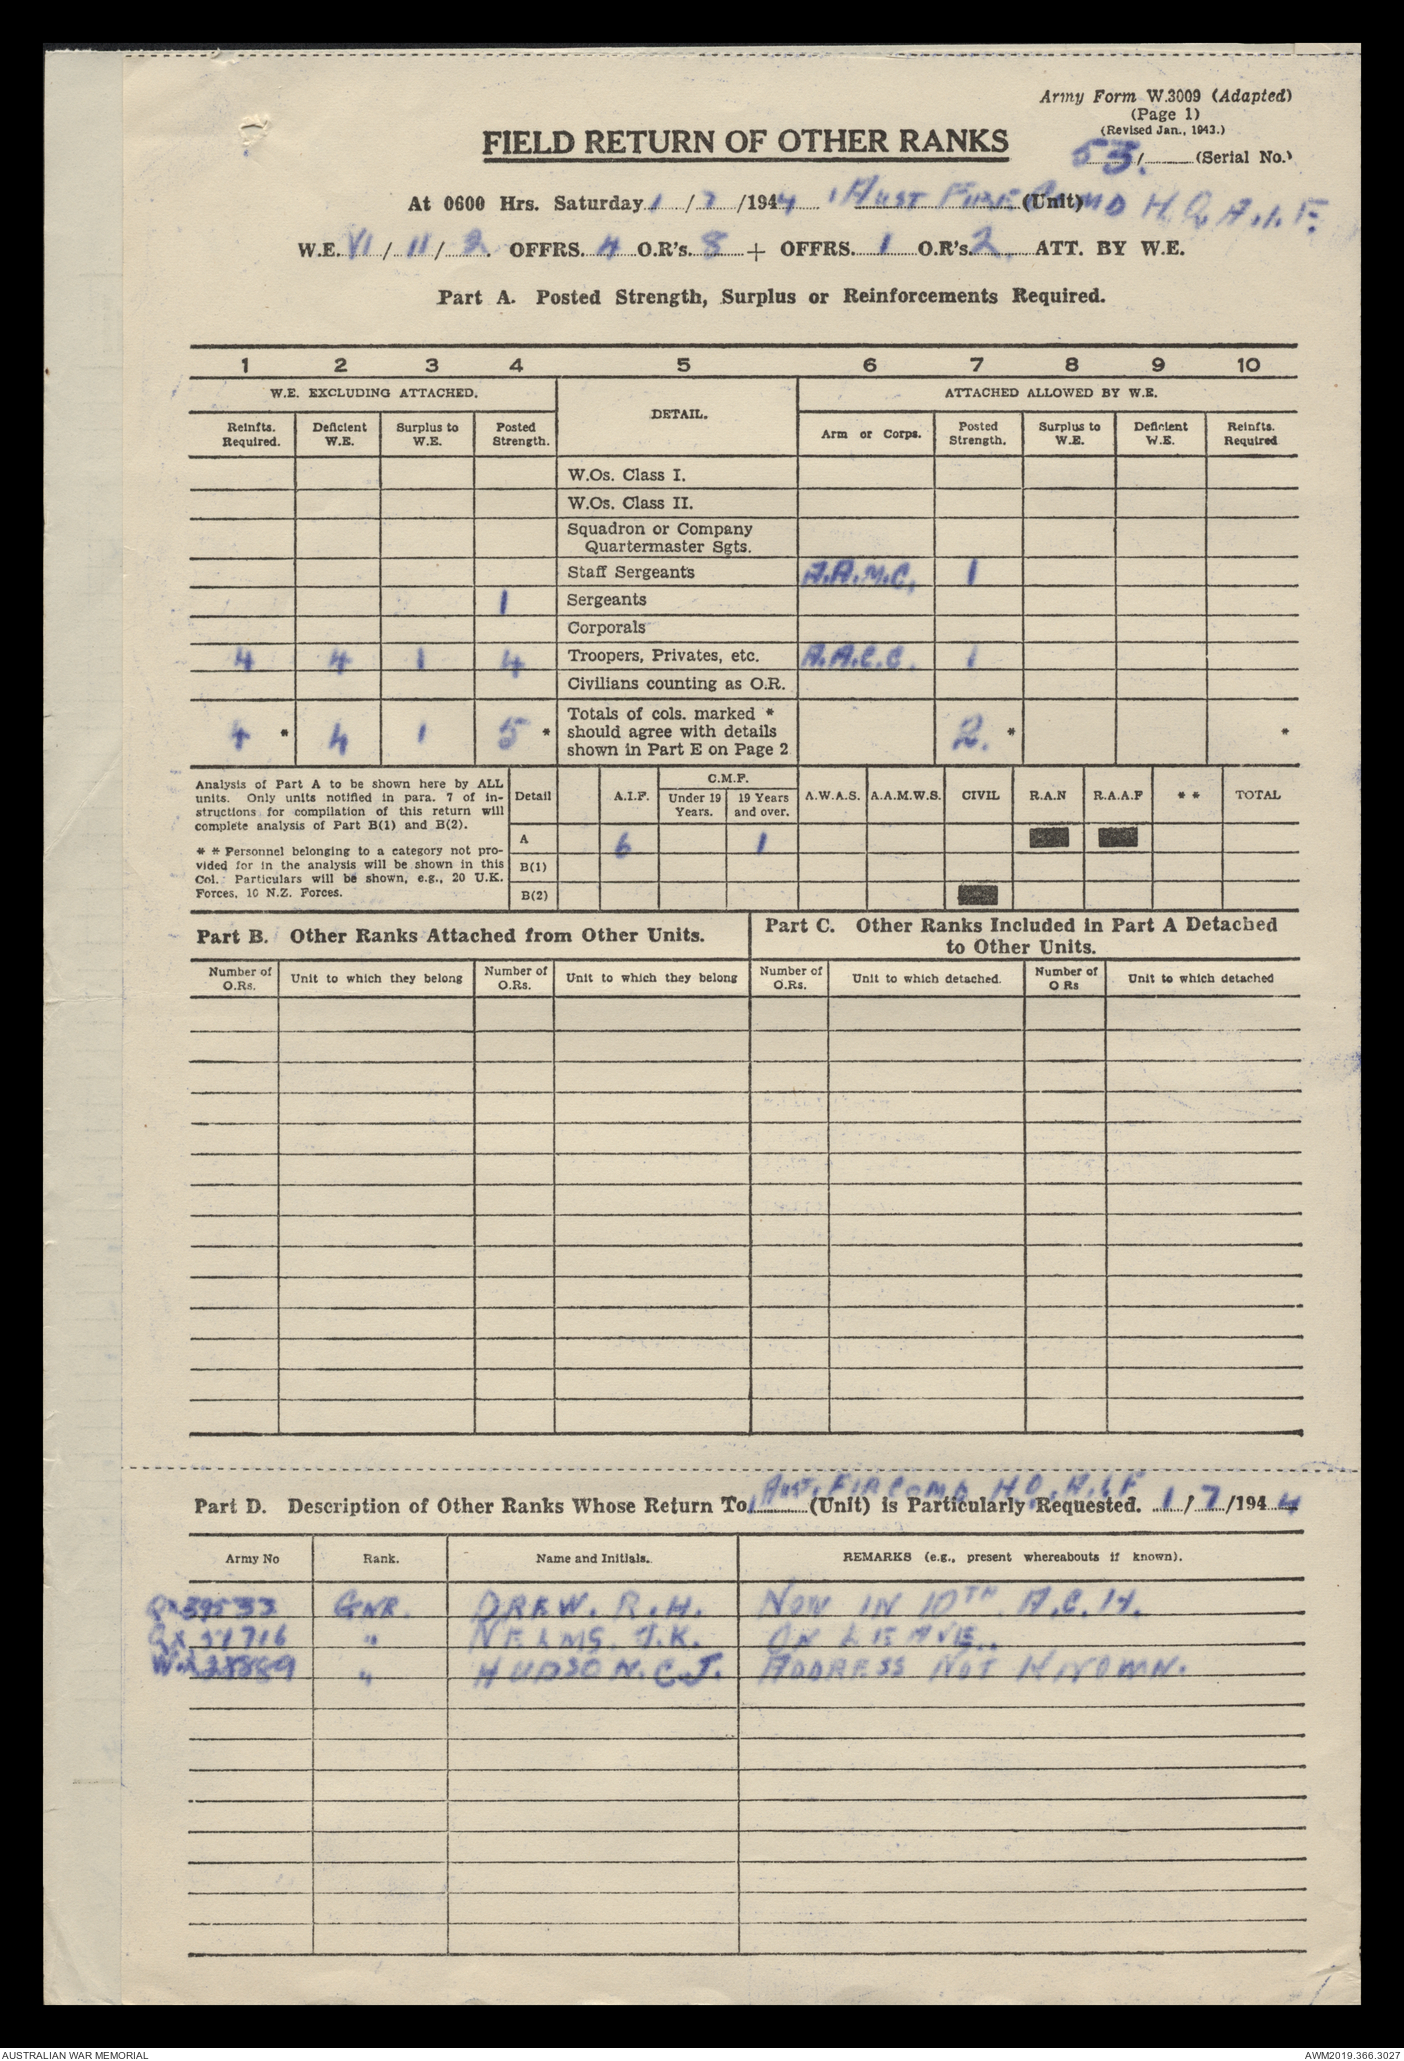 Army Form W.3009 (Adapted)
(Page 1)
(Revised Jan., 1943.)
FIELD RETURN OF OTHER RANKS
53. / (Serial No.)
At 0600 Hrs. Saturday 1 / 7 /1944 1 Aust Fire Comd H.Q. A.I.F. (Unit)
W.E. VI / 11 / 2. OFFRS. 4 O.R's. 8 + OFFRS. 1 O.R's. 2. ATT. BY W.E.
Part A. Posted Strength, Surplus or Reinforcements Required.
1 2 3 4 5 6 7 8 9 10
W.E. EXCLUDING ATTACHED. DETAIL. ATTACHED ALLOWED BY W.E.
Reinfts. Required. Deficient W.E. Surplus to W.E. Posted Strength. Arm or Corps. Posted Strength. Surplus to W.E. Deficient W.E. Reinfts. Required
W.Os. Class I.
W.Os. Class II.
Squadron or Company
Quartermaster Sgts.
Staff Sergeants A.A.M.C. 1
1 Sergeants
Corporals
4 4 1 4 Troopers, Privates, etc. A.A.C.C. 1
Civilians counting as O.R.
4 * 4 1 5 * Totals of cols. marked * should agree with details shown in Part E on Page 2 2. * *
Analysis of Part A to be shown here by ALL
units. Only units notified in para. 7 of in-
structions for compilation of this return will
complete analysis of Part B(1) and B(2).
* * Personnel belonging to a category not pro-
vided for in the analysis will be shown in this
Col. Particulars will be shown, e.g., 20 U.K.
Forces, 10 N.Z. Forces.
Detail A.I.F. C.M.F. Under 19 Years. 19 Years and over. A.W.A.S. A.A.M.W.S. CIVIL R.A.N R.A.A.F * * TOTAL
A 6 1
B(1)
B(2)
Part B. Other Ranks Attached from Other Units.
Part C. Other Ranks Included in Part A Detached
to Other Units.
Number of O.Rs. Unit to which they belong Number of O.Rs. Unit to which they belong Number of O.Rs. Unit to which detached. Number of O Rs Unit to which detached
Part D. Description of Other Ranks Whose Return To 1 Aust. Fir Comd H.Q. A.I.F (Unit) is Particularly Requested. 1 / 7 /1944
Army No Rank. Name and Initials. REMARKS (e.g., present whereabouts if known).
QX39533 GNR. DREW. R.H. NOW IN 10TH A.C.H.
" NELMS. J.K. ON LEAVE.
" HUDSON. C.J. ADDRESS NOT KNOWN.
AUSTRALIAN WAR MEMORIAL
AWM2019.366.3027